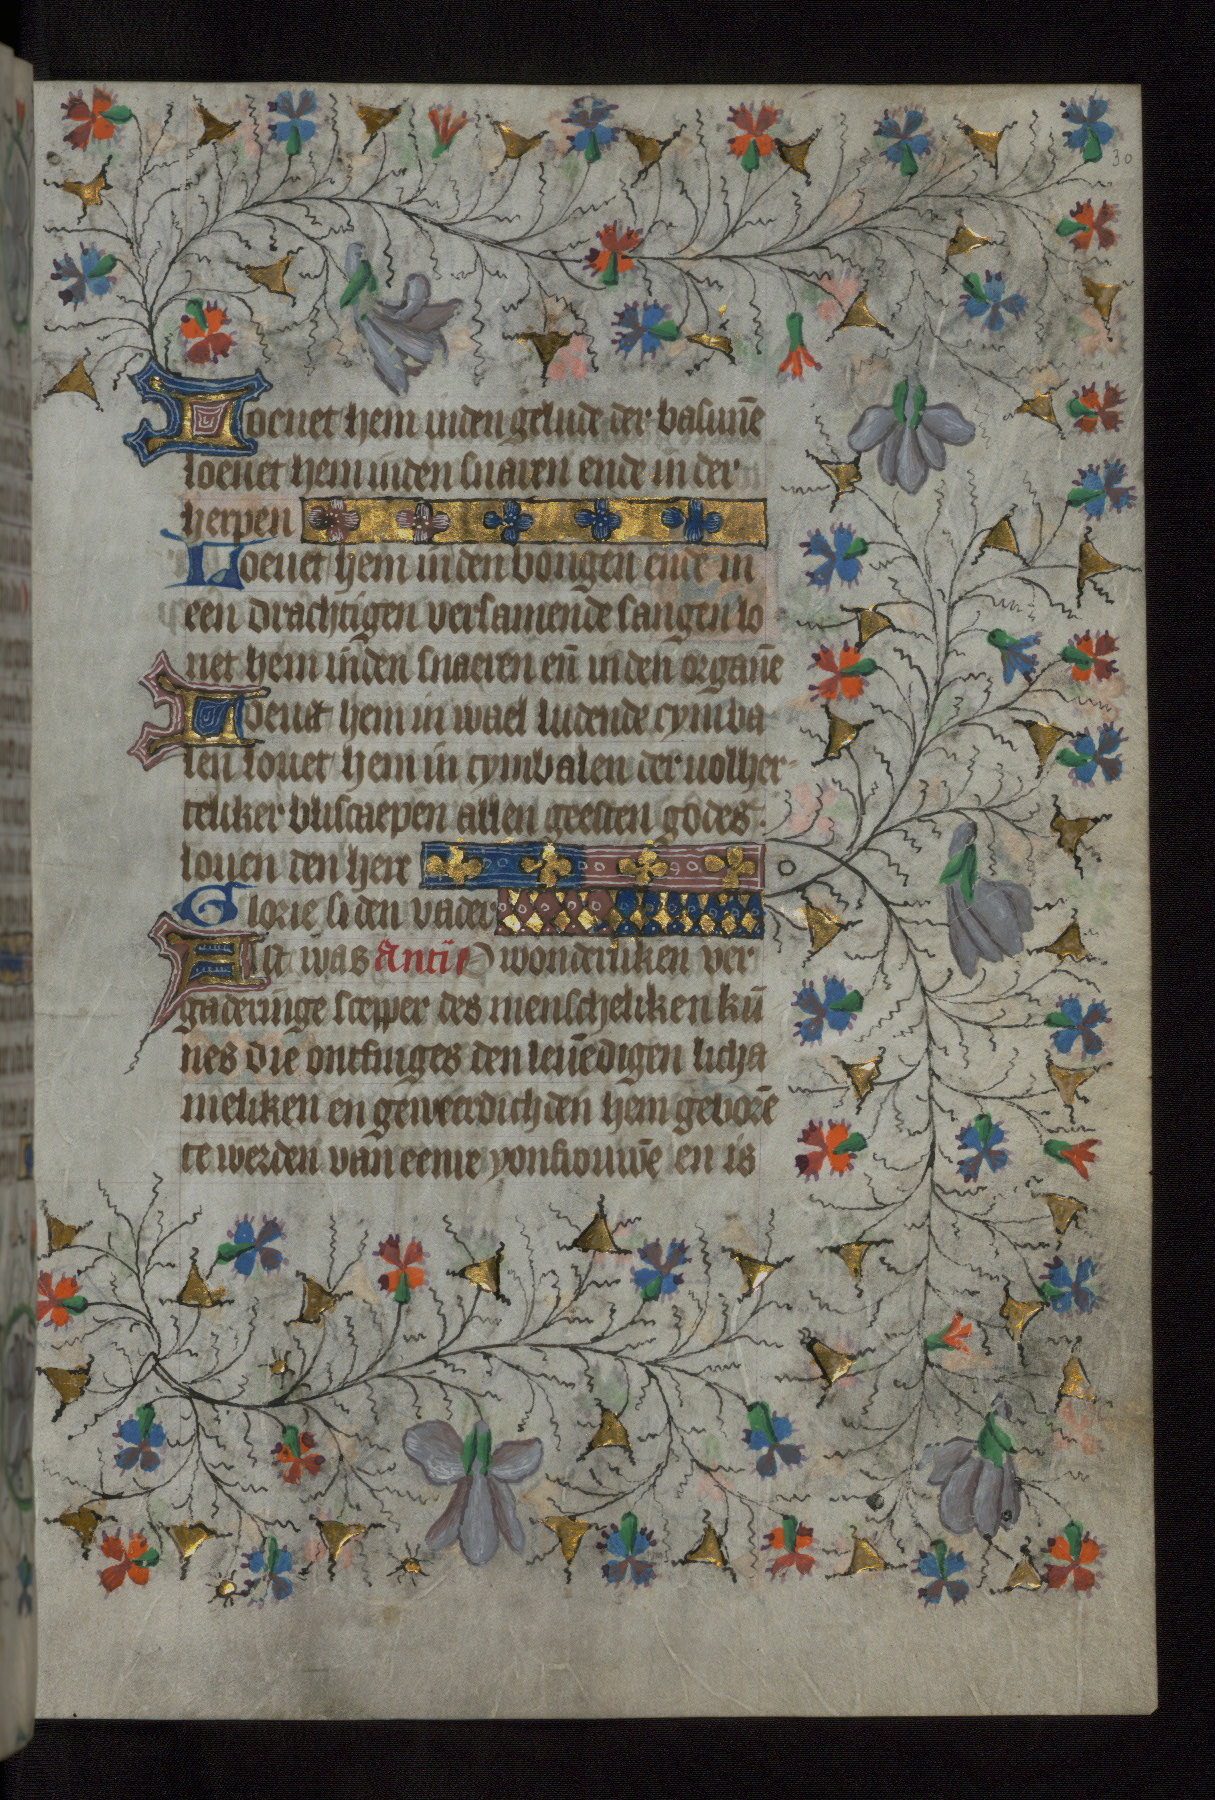 30
Loeuet hem inden gelude der basunē
loeuet hem inden snaren ende in der
herpen
Loeuet hem in den bongen ende in
een drachtigen versamende sangen lo
uet hem inden snaeren eñ inden organē
Loeuet hem in wael ludende cymba
len louet hem in cymbalen der uolher-
teliker bliscaepen allen geesten godes
louen den here
Glorie si den vader
Alst was Antie O wonderliken ver
gaderinge scepper des menscheliken kū
nes die ontfinges den leuēdigen licha
meliken en geweerdich den hem geborē
te werden van eenre yonfrouwē en is